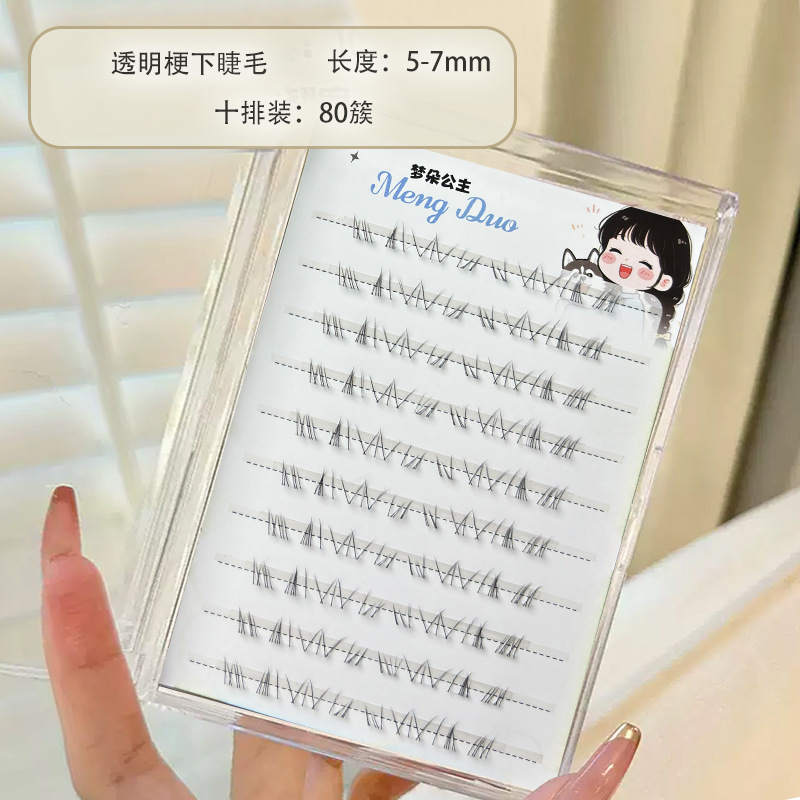 透明梗下睫毛 长度：5-7mm
十排装：80簇
梦朵公主
Meng Duo